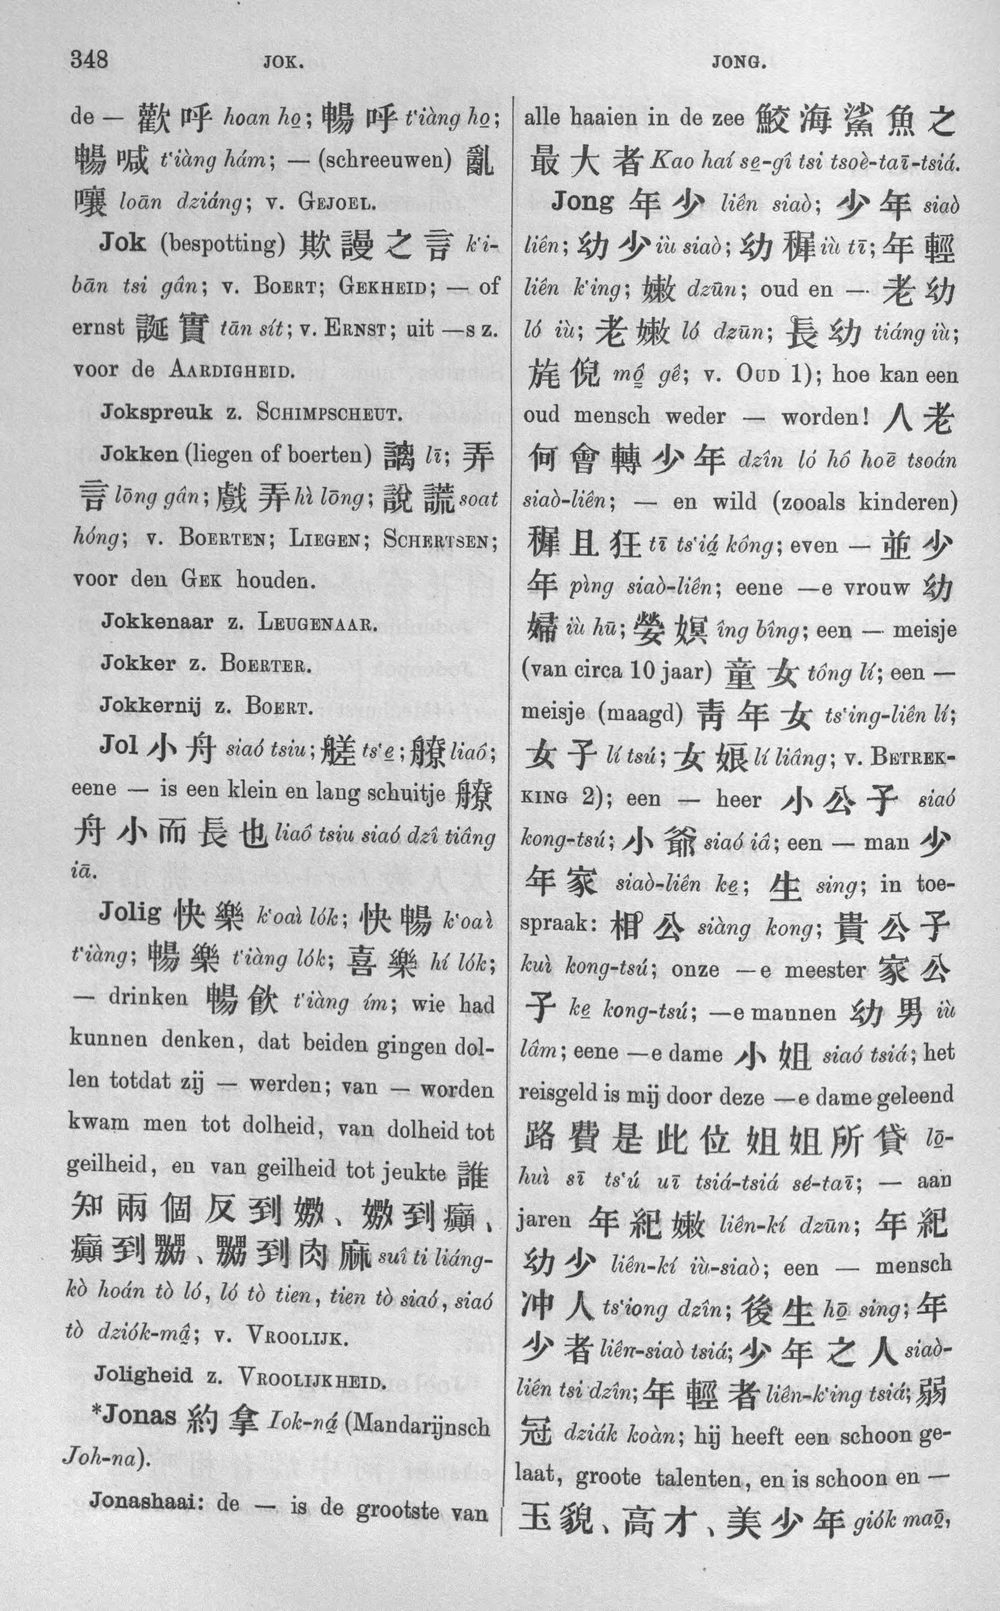 348 JOK. JONG.
de — 歡呼 hoan ho̤; 暢呼 t‘iàng ho̤;
暢喊 t‘iàng hám; — (schreeuwen) 亂
嚷 loān dziáng; v. GEJOEL.
Jok (bespotting) 欺謾之言 k‘i-
bān tsi gân; v. BOERT; GEKHEID; — of
ernst 誕實 tān sít; v. ERNST; uit —s z.
voor de AARDIGHEID.
Jokspreuk z. SCHIMPSCHEUT.
Jokken (liegen of boerten) 謧 lī; 弄
言 lōng gân; 戲弄 hì lōng; 說謊 soat
hóng; v. BOERTEN; LIEGEN; SCHERTSEN;
voor den GEK houden.
Jokkenaar z. LEUGENAAR.
Jokker z. BOERTER.
Jokkernij z. BOERT.
Jol 小舟 siaó tsiu; 艖 ts‘e̤; 艞 liaô;
eene — is een klein en lang schuitje
舟小而長也 liaô tsiu siaó dzî tiâng
iā.
Jolig 快樂 k‘oaì lók; 快暢 k‘oaì
t‘iàng; 暢樂 t‘iàng lók; 喜樂 hí lók;
— drinken 暢飲 t‘iàng ím; wie had
kunnen denken, dat beiden gingen dol-
len totdat zij — werden; van — worden
kwam men tot dolheid, van dolheid tot
geilheid, en van geilheid tot jeukte 誰
知兩個反到嫐、嫐到癲、
癲到嬲、嬲到肉麻 suî ti liáng-
kò hoán tò ló, ló tò tien, tien tò siaó, siaó
tò dziók-mâ̤; v. VROOLIJK.
Joligheid z. VROOLIJKHEID.
*Jonas 約拿 Iok-ná̤ (Mandarijnsch
Joh-na).
Jonashaai: de — is de grootste van
alle haaien in de zee 鮫海鯊魚之
最大者 Kao haí se̤-gî tsi tsoè-taī-tsiá.
Jong 年少 liên siaò; 少年 siaò
liên; 幼少 iù siaò; 幼穉 iù tī; 年輕
liên k‘ing; 嫩 dzūn; oud en — 老幼
ló iù; 老嫩 ló dzūn; 長幼 tiáng iù;
旄倪 mô̤ gê; v. OUD 1); hoe kan een
oud mensch weder — worden! 人老
何會轉少年 dzîn ló hô hoē tsoán
siaò-liên; — en wild (zooals kinderen)
穉且狂 tī ts‘iá̤ kông; even — 並少
年 pìng siaò-liên; eene —e vrouw 幼
婦 iù hū; 嫈嫇 îng bîng; een — meisje
(van circa 10 jaar) 童女 tông lí; een —
meisje (maagd) 青年女 ts‘ing-liên lí;
女子 lí tsú; 女娘 lí liâng; v. BETREK-
KING 2); een — heer 小公子 siaó
kong-tsú; 小爺 siaó iâ; een — man 少
年家 siaò-liên ke̤; 生 sing; in toe-
spraak: 相公 siàng kong; 貴公子
kuì kong-tsú; onze —e meester 家公
子 ke̤ kong-tsú; —e mannen 幼男 iù
lâm; eene —e dame 小姐 siaó tsiá; het
reisgeld is mij door deze —e dame geleend
路費是此位姐姐所貸 lō̤-
huì sī ts‘ú uī tsiá-tsiá sé-taī; — aan
jaren 年紀嫩 liên-kí dzūn; 年紀
幼少 liên-kí iù-siaò; een — mensch
冲人 ts‘iong dzîn; 後生 hō̤ sing; 年
少者 liên-siaò tsiá; 少年之人 siaò-
liên tsi dzîn; 年輕者 liên-k‘ing tsiá; 弱
冠 dziák koàn; hij heeft een schoon ge-
laat, groote talenten, en is schoon en —
玉貌、高才、美少年 giók maō̤,